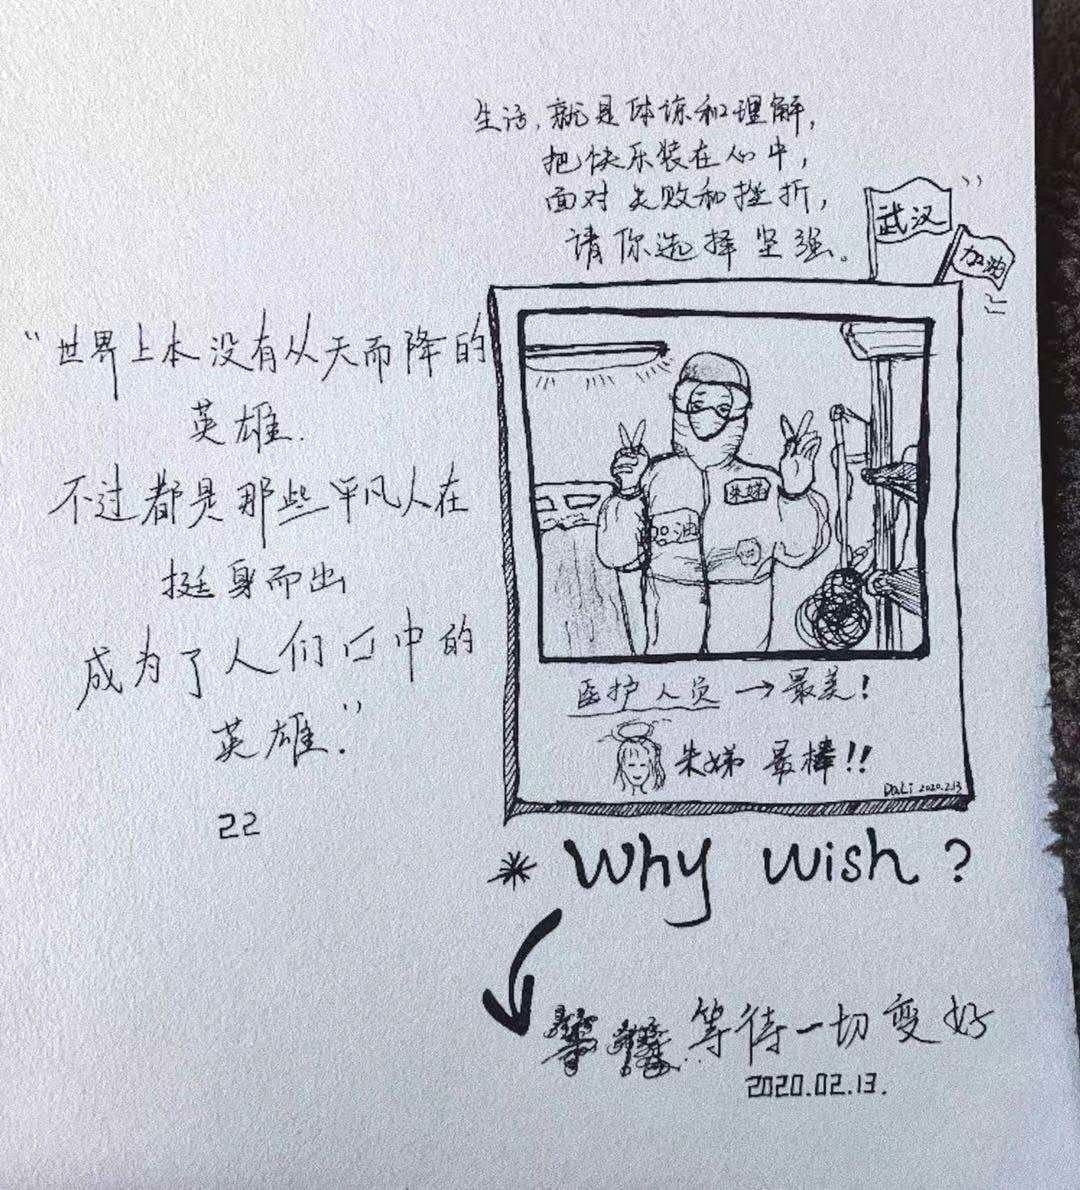 生活,就是体谅和理解,
把快乐装在心中,
面对失败和挫折,
请你选择坚强。
武汉
加油
“世界上本没有从天而降的
英雄.
不过都是那些平凡人在
挺身而出
成为了人们口中的
英雄.”
22
朱娣
加油
医护人员→最美!
朱娣 最棒!!
DaLi 2020.2.13
* Why wish?
等待一切变好
2020.02.13.